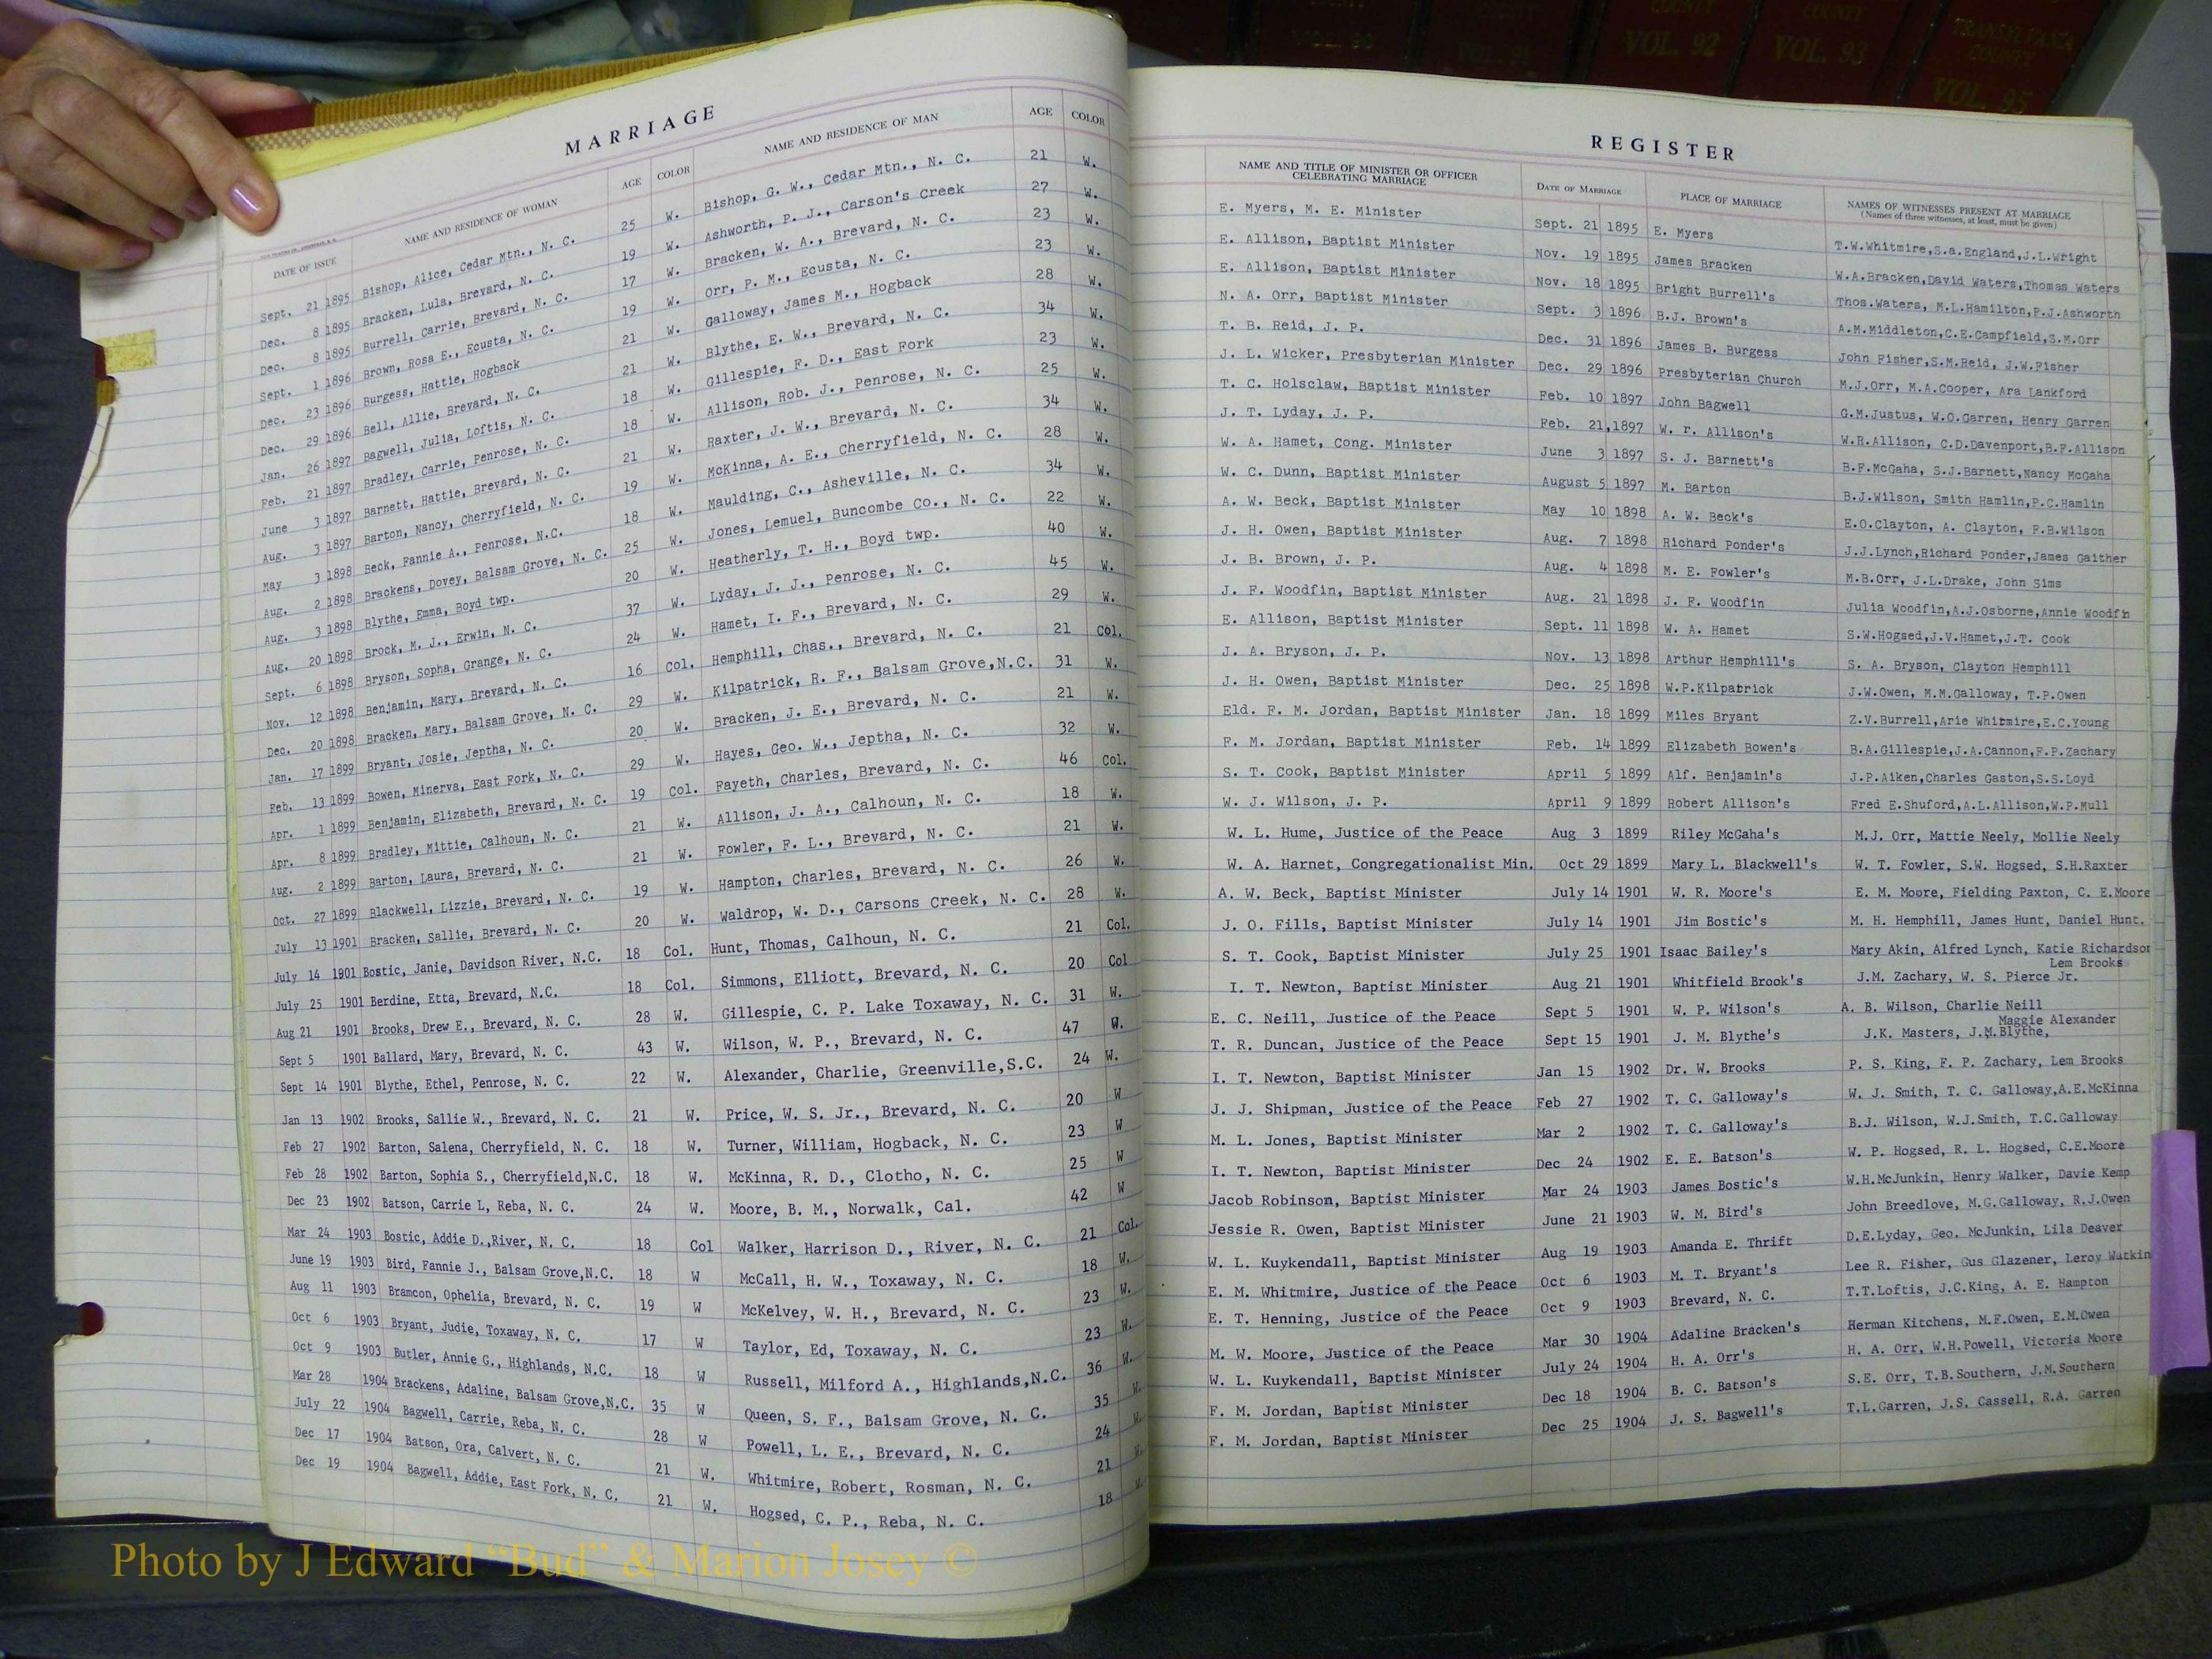 COUNTY
VOL. 92
COUNTY
VOL. 93
TRANSYLVANIA
COUNTY
VOL. 95
MARRIAGE
DATE OF ISSUE NAME AND RESIDENCE OF WOMAN AGE COLOR NAME AND RESIDENCE OF MAN AGE COLOR
Sept. 21 1895 Bishop, Alice, Cedar Mtn., N. C. 25 W. Bishop, G. W., Cedar Mtn., N. C. 21 W.
Dec. 8 1895 Bracken, Lula, Brevard, N. C. 19 W. Ashworth, P. J., Carson's Creek 27 W.
Dec. 8 1895 Burrell, Carrie, Brevard, N. C. 17 W. Bracken, W. A., Brevard, N. C. 23 W.
Sept. 1 1896 Brown, Rosa E., Ecusta, N. C. 19 W. Orr, P. M., Ecusta, N. C. 23 W.
Dec. 23 1896 Burgess, Hattie, Hogback 21 W. Galloway, James M., Hogback 28 W.
Dec. 29 1896 Bell, Allie, Brevard, N. C. 21 W. Blythe, E. W., Brevard, N. C. 34 W.
Jan. 26 1897 Bagwell, Julia, Loftis, N. C. 18 W. Gillespie, F. D., East Fork 23 W.
Feb. 21 1897 Bradley, Carrie, Penrose, N. C. 18 W. Allison, Rob. J., Penrose, N. C. 25 W.
June 3 1897 Barnett, Hattie, Brevard, N. C. 21 W. Raxter, J. W., Brevard, N. C. 34 W.
Aug. 3 1897 Barton, Nancy, Cherryfield, N. C. 19 W. McKinna, A. E., Cherryfield, N. C. 28 W.
May 3 1898 Beck, Fannie A., Penrose, N.C. 18 W. Maulding, C., Asheville, N. C. 34 W.
Aug. 2 1898 Brackens, Dovey, Balsam Grove, N. C. 25 W. Jones, Lemuel, Buncombe Co., N. C. 22 W.
Aug. 3 1898 Blythe, Emma, Boyd twp. 20 W. Heatherly, T. H., Boyd twp. 40 W.
Aug. 20 1898 Brock, M. J., Erwin, N. C. 37 W. Lyday, J. J., Penrose, N. C. 45 W.
Sept. 6 1898 Bryson, Sopha, Grange, N. C. 24 W. Hamet, I. F., Brevard, N. C. 29 W.
Nov. 12 1898 Benjamin, Mary, Brevard, N. C. 16 Col. Hemphill, Chas., Brevard, N. C. 21 Col.
Dec. 20 1898 Bracken, Mary, Balsam Grove, N. C. 29 W. Kilpatrick, R. F., Balsam Grove,N.C. 31 W.
Jan. 17 1899 Bryant, Josie, Jeptha, N. C. 20 W. Bracken, J. E., Brevard, N. C. 21 W.
Feb. 13 1899 Bowen, Minerva, East Fork, N. C. 29 W. Hayes, Geo. W., Jeptha, N. C. 32 W.
Apr. 1 1899 Benjamin, Elizabeth, Brevard, N. C. 19 Col. Fayeth, Charles, Brevard, N. C. 46 Col.
Apr. 8 1899 Bradley, Mittie, Calhoun, N. C. 21 W. Allison, J. A., Calhoun, N. C. 18 W.
Aug. 2 1899 Barton, Laura, Brevard, N. C. 21 W. Fowler, F. L., Brevard, N. C. 21 W.
Oct. 27 1899 Blackwell, Lizzie, Brevard, N. C. 19 W. Hampton, Charles, Brevard, N. C. 26 W.
July 13 1901 Bracken, Sallie, Brevard, N. C. 20 W. Waldrop, W. D., Carsons Creek, N. C. 28 W.
July 14 1901 Bostic, Janie, Davidson River, N.C. 18 Col. Hunt, Thomas, Calhoun, N. C. 21 Col.
July 25 1901 Berdine, Etta, Brevard, N.C. 18 Col. Simmons, Elliott, Brevard, N. C. 20 Col
Aug 21 1901 Brooks, Drew E., Brevard, N. C. 28 W. Gillespie, C. P. Lake Toxaway, N. C. 31 W.
Sept 5 1901 Ballard, Mary, Brevard, N. C. 43 W. Wilson, W. P., Brevard, N. C. 47 W.
Sept 14 1901 Blythe, Ethel, Penrose, N. C. 22 W. Alexander, Charlie, Greenville,S.C. 24 W.
Jan 13 1902 Brooks, Sallie W., Brevard, N. C. 21 W. Price, W. S. Jr., Brevard, N. C. 20 W
Feb 27 1902 Barton, Salena, Cherryfield, N. C. 18 W. Turner, William, Hogback, N. C. 23 W
Feb 28 1902 Barton, Sophia S., Cherryfield,N.C. 18 W. McKinna, R. D., Clotho, N. C. 25 W
Dec 23 1902 Batson, Carrie L, Reba, N. C. 24 W. Moore, B. M., Norwalk, Cal. 42 W
Mar 24 1903 Bostic, Addie D.,River, N. C. 18 Col Walker, Harrison D., River, N. C. 21 Col.
June 19 1903 Bird, Fannie J., Balsam Grove,N.C. 18 W McCall, H. W., Toxaway, N. C. 18 W.
Aug 11 1903 Bramcon, Ophelia, Brevard, N. C. 19 W McKelvey, W. H., Brevard, N. C. 23 W.
Oct 6 1903 Bryant, Judie, Toxaway, N. C. 17 W Taylor, Ed, Toxaway, N. C. 23 W.
Oct 9 1903 Butler, Annie G., Highlands, N.C. 18 W Russell, Milford A., Highlands,N.C. 36 W.
Mar 28 1904 Brackens, Adaline, Balsam Grove,N.C. 35 W Queen, S. F., Balsam Grove, N. C. 35 W.
July 22 1904 Bagwell, Carrie, Reba, N. C. 28 W Powell, L. E., Brevard, N. C. 24 W.
Dec 17 1904 Batson, Ora, Calvert, N. C. 21 W. Whitmire, Robert, Rosman, N. C. 21 W.
Dec 19 1904 Bagwell, Addie, East Fork, N. C. 21 W. Hogsed, C. P., Reba, N. C. 18 W.
REGISTER
NAME AND TITLE OF MINISTER OR OFFICER CELEBRATING MARRIAGE DATE OF MARRIAGE PLACE OF MARRIAGE NAMES OF WITNESSES PRESENT AT MARRIAGE
(Names of three witnesses, at least, must be given)
E. Myers, M. E. Minister Sept. 21 1895 E. Myers T.W.Whitmire,S.a.England,J.L.Wright
E. Allison, Baptist Minister Nov. 19 1895 James Bracken W.A.Bracken,David Waters,Thomas Waters
E. Allison, Baptist Minister Nov. 18 1895 Bright Burrell's Thos.Waters, M.L.Hamilton,P.J.Ashworth
N. A. Orr, Baptist Minister Sept. 3 1896 B.J. Brown's A.M.Middleton,C.E.Campfield,S.M.Orr
T. B. Reid, J. P. Dec. 31 1896 James B. Burgess John Fisher,S.M.Reid, J.W.Fisher
J. L. Wicker, Presbyterian Minister Dec. 29 1896 Presbyterian Church M.J.Orr, M.A.Cooper, Ara Lankford
T. C. Holsclaw, Baptist Minister Feb. 10 1897 John Bagwell G.M.Justus, W.O.Garren, Henry Garren
J. T. Lyday, J. P. Feb. 21,1897 W. r. Allison's W.R.Allison, C.D.Davenport,B.F.Allison
W. A. Hamet, Cong. Minister June 3 1897 S. J. Barnett's B.F.McGaha, S.J.Barnett,Nancy McGaha
W. C. Dunn, Baptist Minister August 5 1897 M. Barton B.J.Wilson, Smith Hamlin,P.C.Hamlin
A. W. Beck, Baptist Minister May 10 1898 A. W. Beck's E.O.Clayton, A. Clayton, F.B.Wilson
J. H. Owen, Baptist Minister Aug. 7 1898 Richard Ponder's J.J.Lynch,Richard Ponder,James Gaither
J. B. Brown, J. P. Aug. 4 1898 M. E. Fowler's M.B.Orr, J.L.Drake, John Sims
J. F. Woodfin, Baptist Minister Aug. 21 1898 J. F. Woodfin Julia Woodfin,A.J.Osborne,Annie Woodfin
E. Allison, Baptist Minister Sept. 11 1898 W. A. Hamet S.W.Hogsed,J.V.Hamet,J.T. Cook
J. A. Bryson, J. P. Nov. 13 1898 Arthur Hemphill's S. A. Bryson, Clayton Hemphill
J. H. Owen, Baptist Minister Dec. 25 1898 W.P.Kilpatrick J.W.Owen, M.M.Galloway, T.P.Owen
Eld. F. M. Jordan, Baptist Minister Jan. 18 1899 Miles Bryant Z.V.Burrell,Arie Whitmire,E.C.Young
F. M. Jordan, Baptist Minister Feb. 14 1899 Elizabeth Bowen's B.A.Gillespie,J.A.Cannon,F.P.Zachary
S. T. Cook, Baptist Minister April 5 1899 Alf. Benjamin's J.P.Aiken,Charles Gaston,S.S.Loyd
W. J. Wilson, J. P. April 9 1899 Robert Allison's Fred E.Shuford,A.L.Allison,W.P.Mull
W. L. Hume, Justice of the Peace Aug 3 1899 Riley McGaha's M.J. Orr, Mattie Neely, Mollie Neely
W. A. Harnet, Congregationalist Min. Oct 29 1899 Mary L. Blackwell's W. T. Fowler, S.W. Hogsed, S.H.Raxter
A. W. Beck, Baptist Minister July 14 1901 W. R. Moore's E. M. Moore, Fielding Paxton, C. E.Moore
J. O. Fills, Baptist Minister July 14 1901 Jim Bostic's M. H. Hemphill, James Hunt, Daniel Hunt.
S. T. Cook, Baptist Minister July 25 1901 Isaac Bailey's Mary Akin, Alfred Lynch, Katie Richardson
Lem Brooks
I. T. Newton, Baptist Minister Aug 21 1901 Whitfield Brook's J.M. Zachary, W. S. Pierce Jr.
E. C. Neill, Justice of the Peace Sept 5 1901 W. P. Wilson's A. B. Wilson, Charlie Neill
Maggie Alexander
T. R. Duncan, Justice of the Peace Sept 15 1901 J. M. Blythe's J.K. Masters, J.M.Blythe,
I. T. Newton, Baptist Minister Jan 15 1902 Dr. W. Brooks P. S. King, F. P. Zachary, Lem Brooks
J. J. Shipman, Justice of the Peace Feb 27 1902 T. C. Galloway's W. J. Smith, T. C. Galloway,A.E.McKinna
M. L. Jones, Baptist Minister Mar 2 1902 T. C. Galloway's B.J. Wilson, W.J.Smith, T.C.Galloway
I. T. Newton, Baptist Minister Dec 24 1902 E. E. Batson's W. P. Hogsed, R. L. Hogsed, C.E.Moore
Jacob Robinson, Baptist Minister Mar 24 1903 James Bostic's W.H.McJunkin, Henry Walker, Davie Kemp
Jessie R. Owen, Baptist Minister June 21 1903 W. M. Bird's John Breedlove, M.G.Galloway, R.J.Owen
W. L. Kuykendall, Baptist Minister Aug 19 1903 Amanda E. Thrift D.E.Lyday, Geo. McJunkin, Lila Deaver
E. M. Whitmire, Justice of the Peace Oct 6 1903 M. T. Bryant's Lee R. Fisher, Gus Glazener, Leroy Watkin
E. T. Henning, Justice of the Peace Oct 9 1903 Brevard, N. C. T.T.Loftis, J.C.King, A. E. Hampton
M. W. Moore, Justice of the Peace Mar 30 1904 Adaline Bracken's Herman Kitchens, M.F.Owen, E.M.Owen
W. L. Kuykendall, Baptist Minister July 24 1904 H. A. Orr's H. A. Orr, W.H.Powell, Victoria Moore
F. M. Jordan, Baptist Minister Dec 18 1904 B. C. Batson's S.E. Orr, T.B.Southern, J.M.Southern
F. M. Jordan, Baptist Minister Dec 25 1904 J. S. Bagwell's T.L.Garren, J.S. Cassell, R.A. Garren
Photo by J Edward “Bud” & Marion Josey ©